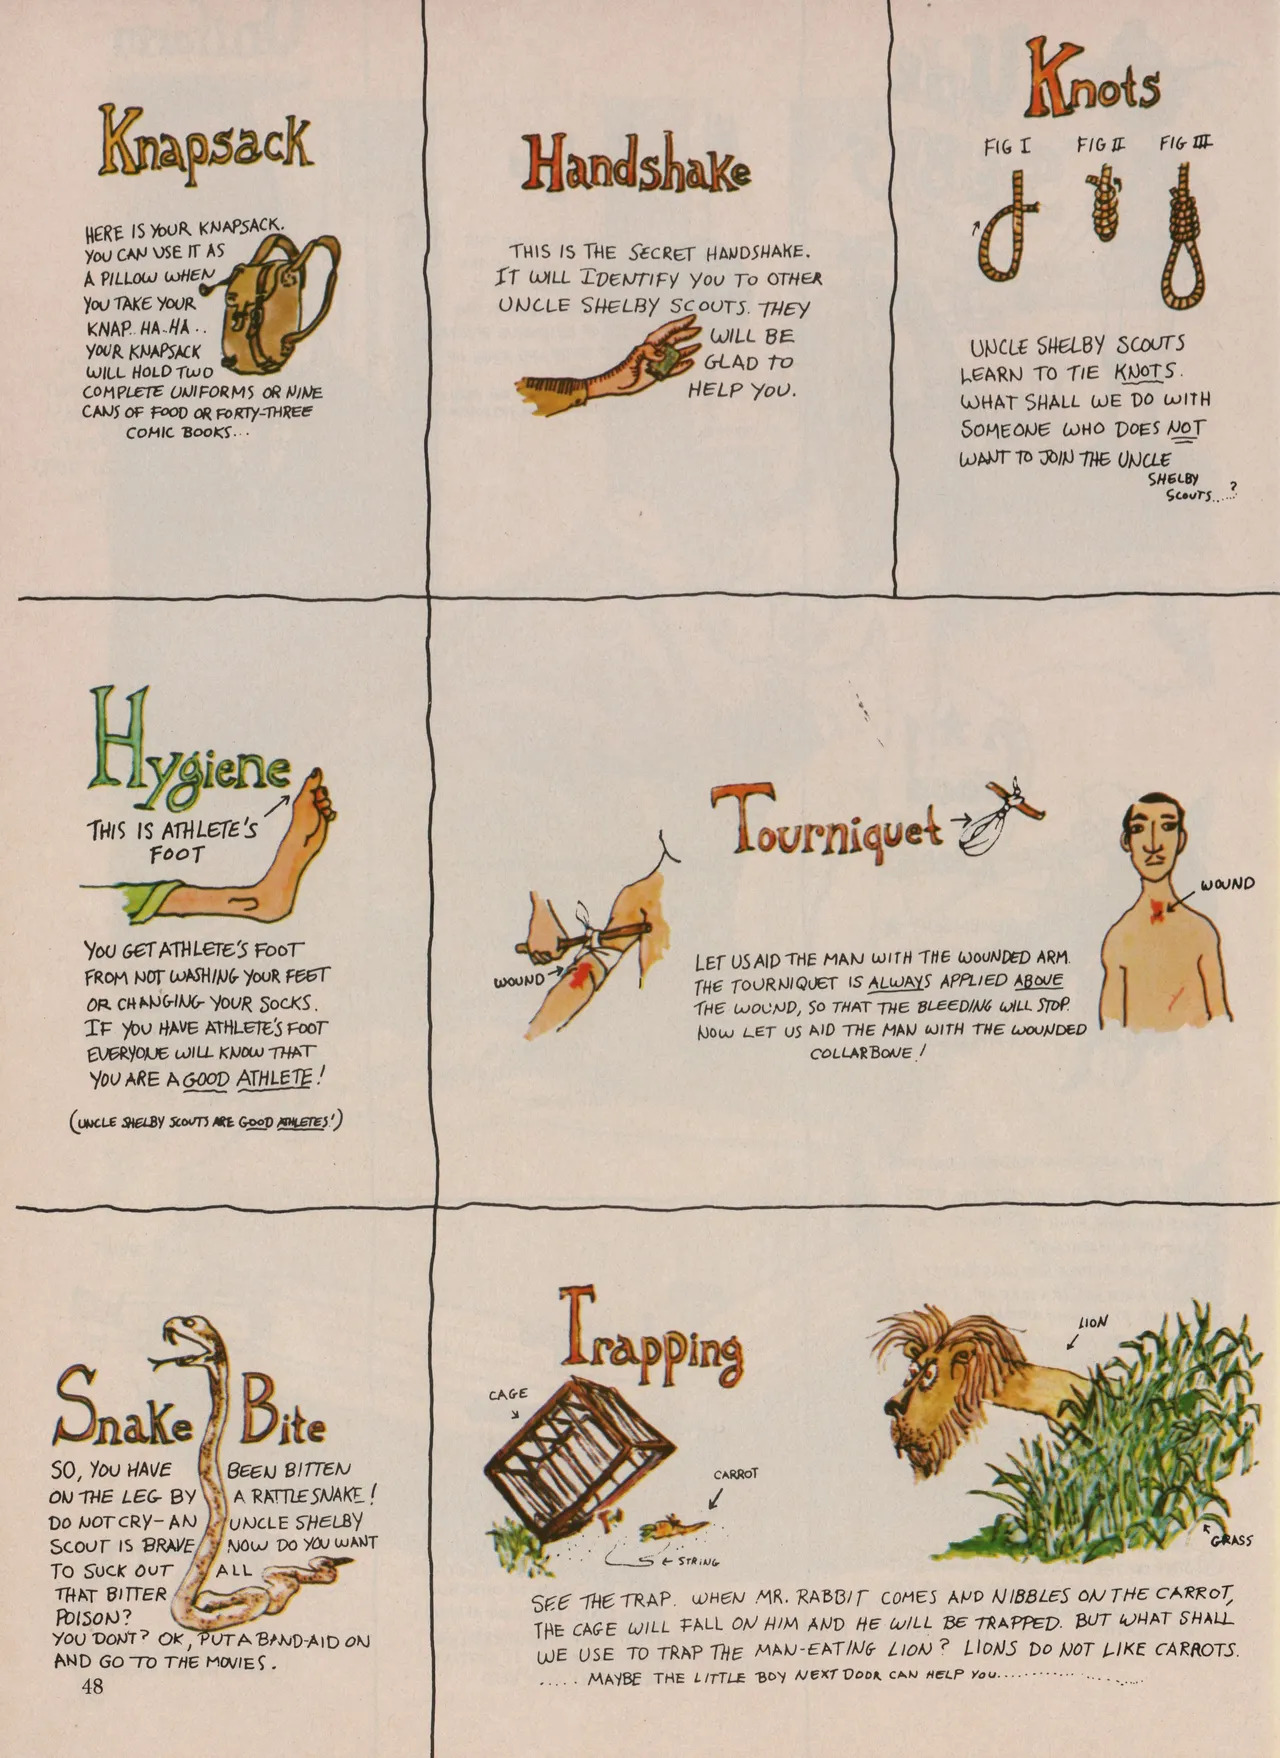 Knapsack
HERE IS YOUR KNAPSACK.
YOU CAN USE IT AS
A PILLOW WHEN
YOU TAKE YOUR
KNAP.. HA-HA..
YOUR KNAPSACK
WILL HOLD TWO
COMPLETE UNIFORMS OR NINE
CANS OF FOOD OR FORTY-THREE
COMIC BOOKS...
Handshake
THIS IS THE SECRET HANDSHAKE.
IT WILL IDENTIFY YOU TO OTHER
UNCLE SHELBY SCOUTS. THEY
WILL BE
GLAD TO
HELP YOU.
Knots
FIG I FIG II FIG III
UNCLE SHELBY SCOUTS
LEARN TO TIE KNOTS.
WHAT SHALL WE DO WITH
SOMEONE WHO DOES NOT
WANT TO JOIN THE UNCLE
SHELBY
SCOUTS.....?
Hygiene
THIS IS ATHLETE'S
FOOT
YOU GET ATHLETE'S FOOT
FROM NOT WASHING YOUR FEET
OR CHANGING YOUR SOCKS.
IF YOU HAVE ATHLETE'S FOOT
EVERYONE WILL KNOW THAT
YOU ARE A GOOD ATHLETE!
(UNCLE SHELBY SCOUTS ARE GOOD ATHLETES!)
Tourniquet
WOUND
WOUND
LET US AID THE MAN WITH THE WOUNDED ARM.
THE TOURNIQUET IS ALWAYS APPLIED ABOVE
THE WOUND, SO THAT THE BLEEDING WILL STOP.
NOW LET US AID THE MAN WITH THE WOUNDED
COLLARBONE!
Snake Bite
SO, YOU HAVE BEEN BITTEN
ON THE LEG BY A RATTLESNAKE!
DO NOT CRY-AN UNCLE SHELBY
SCOUT IS BRAVE NOW DO YOU WANT
TO SUCK OUT ALL
THAT BITTER
POISON?
YOU DON'T? OK, PUT A BAND-AID ON
AND GO TO THE MOVIES.
48
Trapping
CAGE
CARROT
STRING
LION
GRASS
SEE THE TRAP. WHEN MR. RABBIT COMES AND NIBBLES ON THE CARROT,
THE CAGE WILL FALL ON HIM AND HE WILL BE TRAPPED. BUT WHAT SHALL
WE USE TO TRAP THE MAN-EATING LION? LIONS DO NOT LIKE CARROTS.
..... MAYBE THE LITTLE BOY NEXT DOOR CAN HELP YOU....................